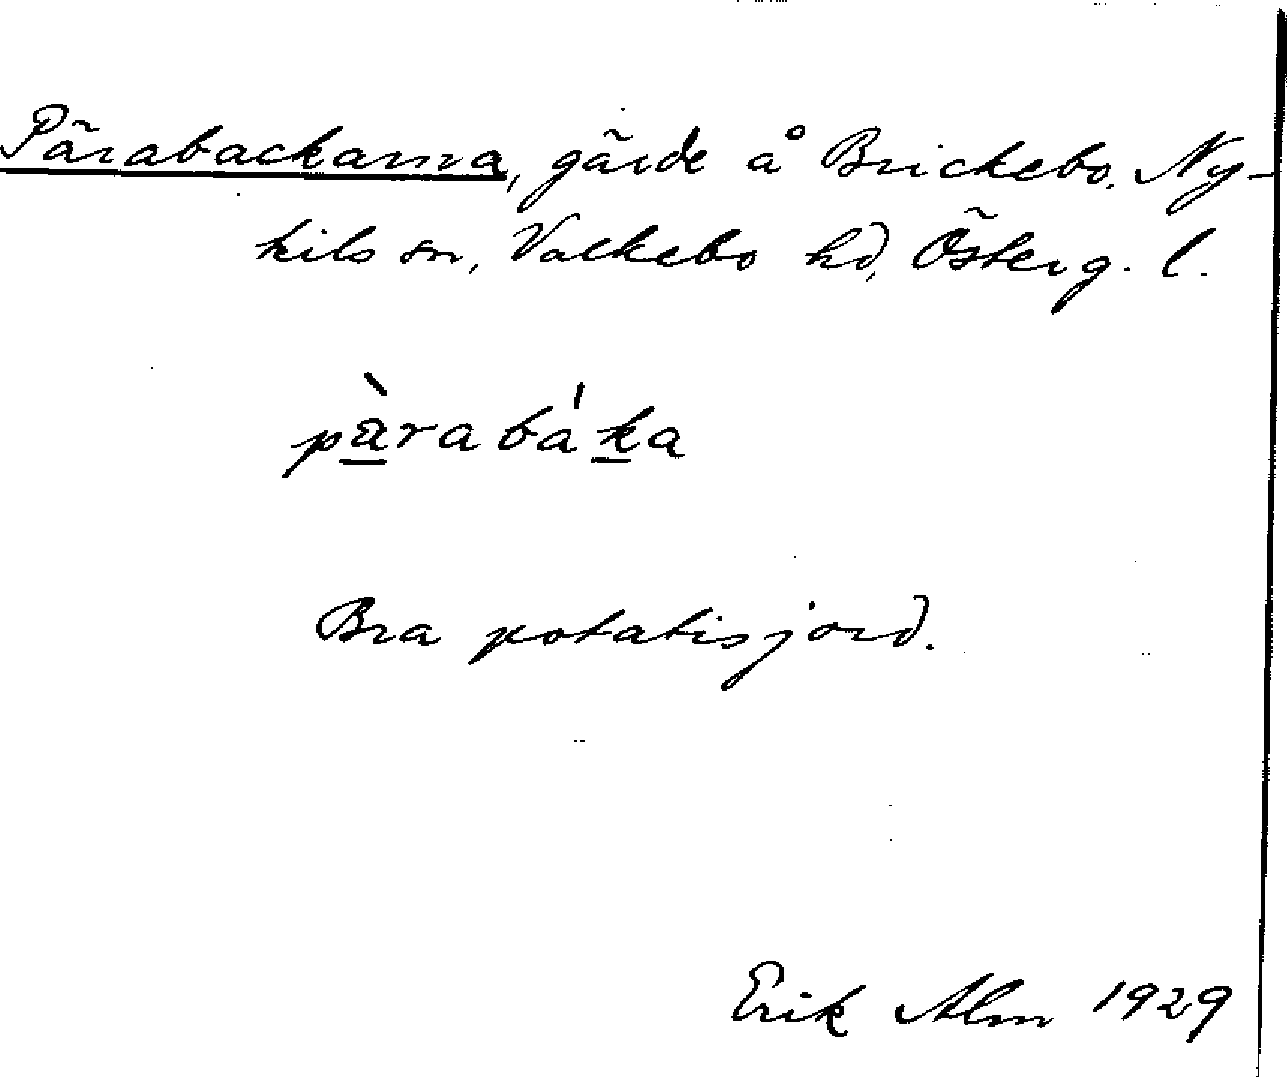 Pärabackarna, gärde å Brickebo, Ny-
kils sn, Valkebo hd, Österg. l.
pàrabáka
Bra potatisjord.
Erik Alm 1929